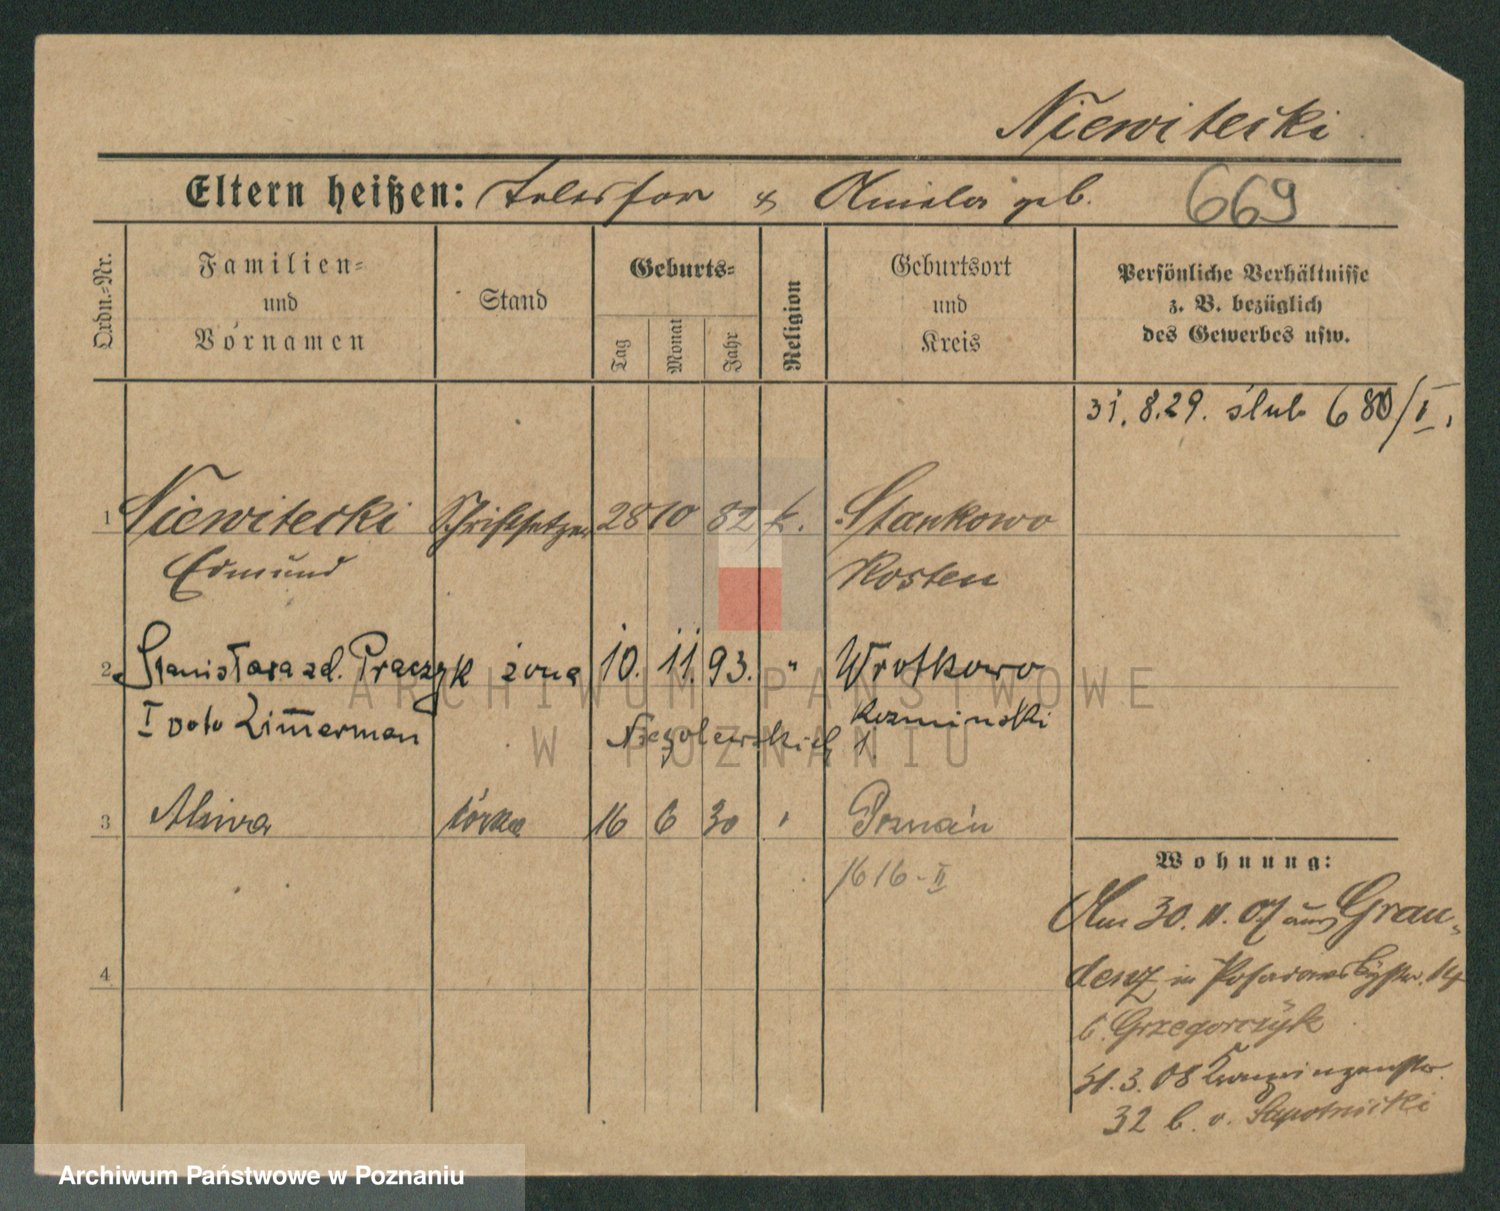 Niewitecki
Eltern heißen: Telesfor & Amalia geb. 669
Ordn.=Nr. Familien= und Vornamen Stand Geburts= Tag Monat Jahr Religion Geburtsort und Kreis Persönliche Verhältnisse z. B. bezüglich des Gewerbes usw.
31. 8. 29. ślub 680/I.
1 Niewitecki Schriftsetzer 28 10 82 k. Stankowo
Edmund Kosten
2 Stanisława zd. Praczyk żona 10. 11. 93. " Wrotkowo
I voto Zimerman Niegolewskich 1. Kozminski
3 Alina córka 16 6 30 " Poznań
1616-II
4
Wohnung:
Am 30. 11. 07 aus Grau-
denz in 14
b. Grzegorczyk
31. 3. 08 Kronprinzenstr.
32 b. v.
ARCHIWUM PAŃSTWOWE
W POZNANIU
Archiwum Państwowe w Poznaniu